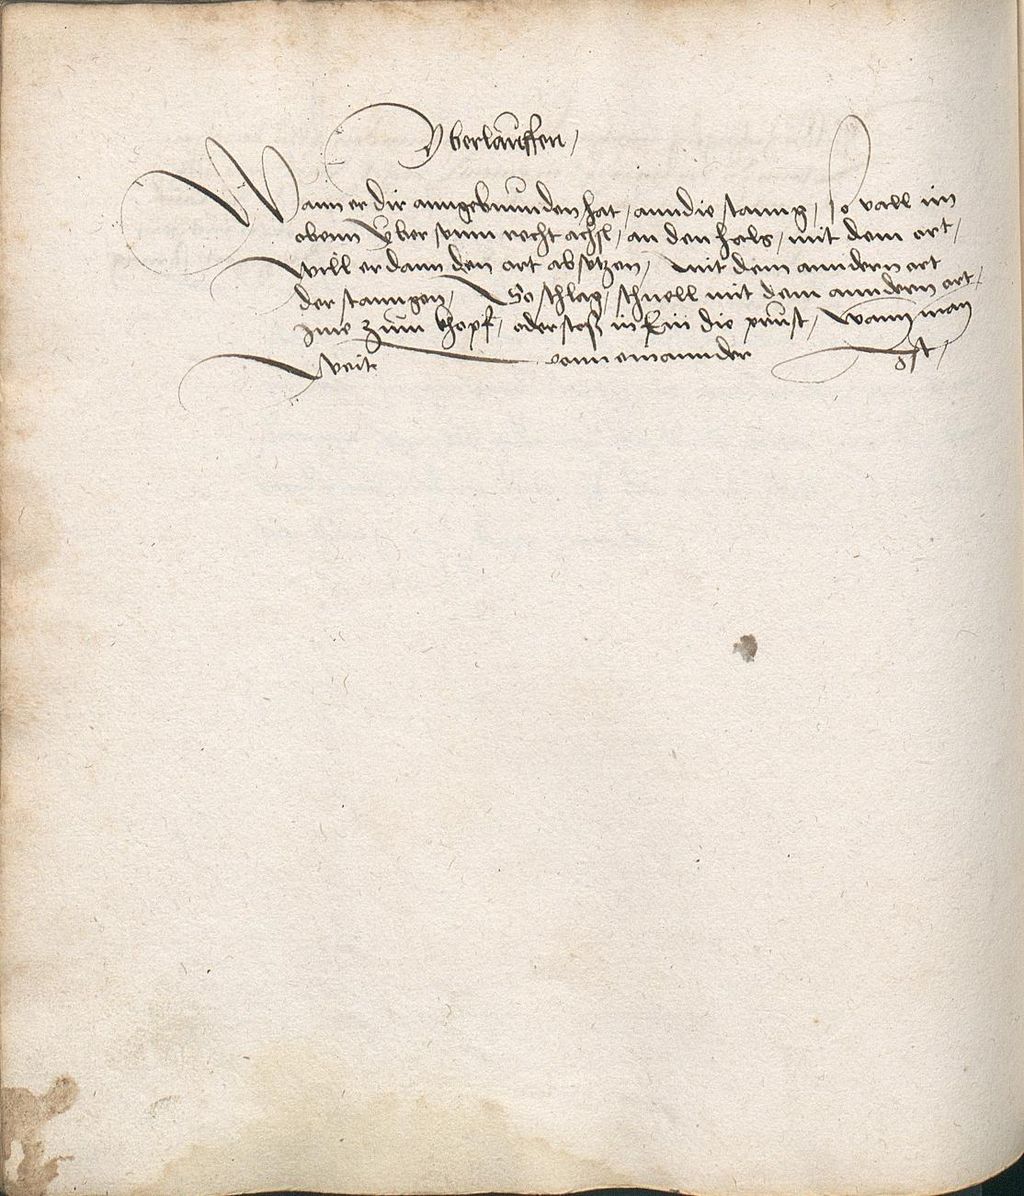 Vberlauffen /
Wann er dir anngebunnden hat / ann die stanng / so vall im
obenn Vber seinn recht achsl / an den hals / mit dem ort /
Will er dann den ort absetzen / mit dem anndern ort
der stanngen / So schlag / schnell mit dem anndern ort /
Ime zum khopf / oder stoß in die prust / wann man
Weit vonn einannder Ist /